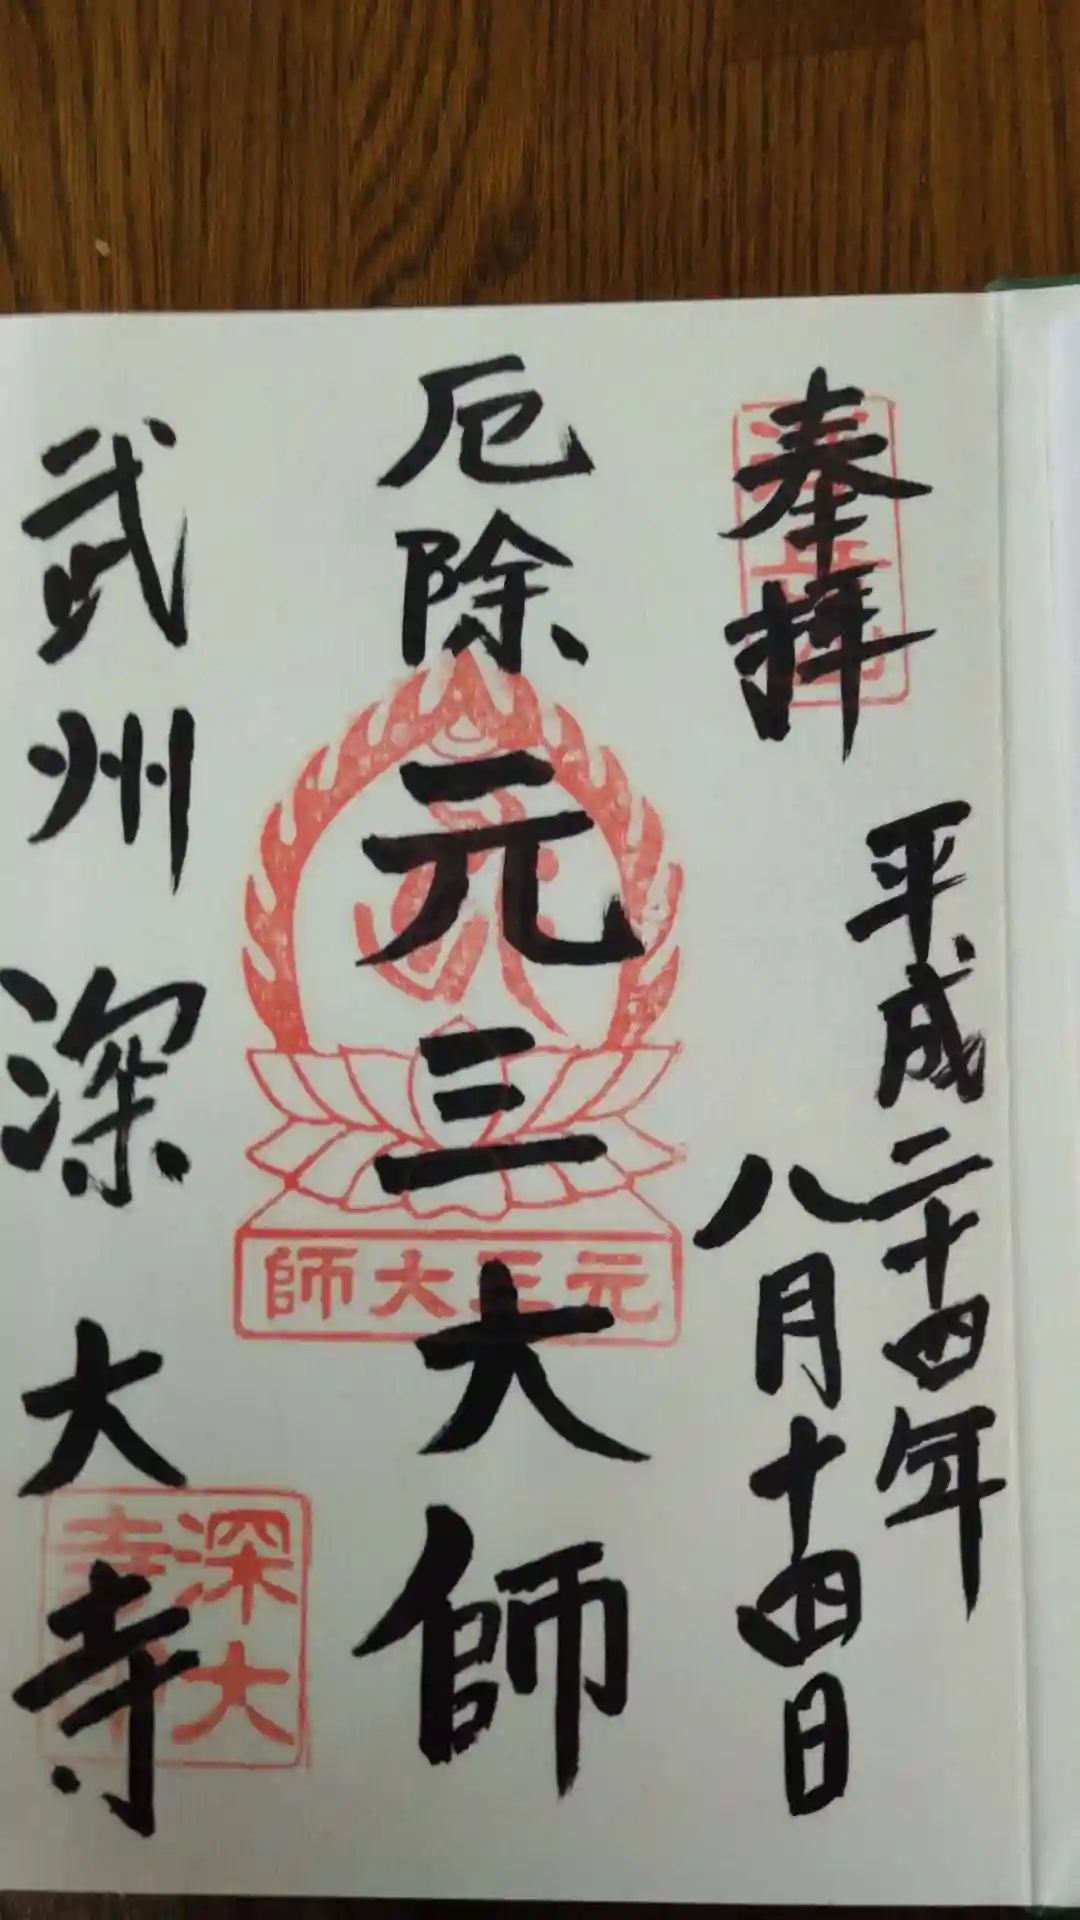 奉拝
平成二十四年
八月十四日
厄除元三大師
師大三元
武州深大寺
深大
寺